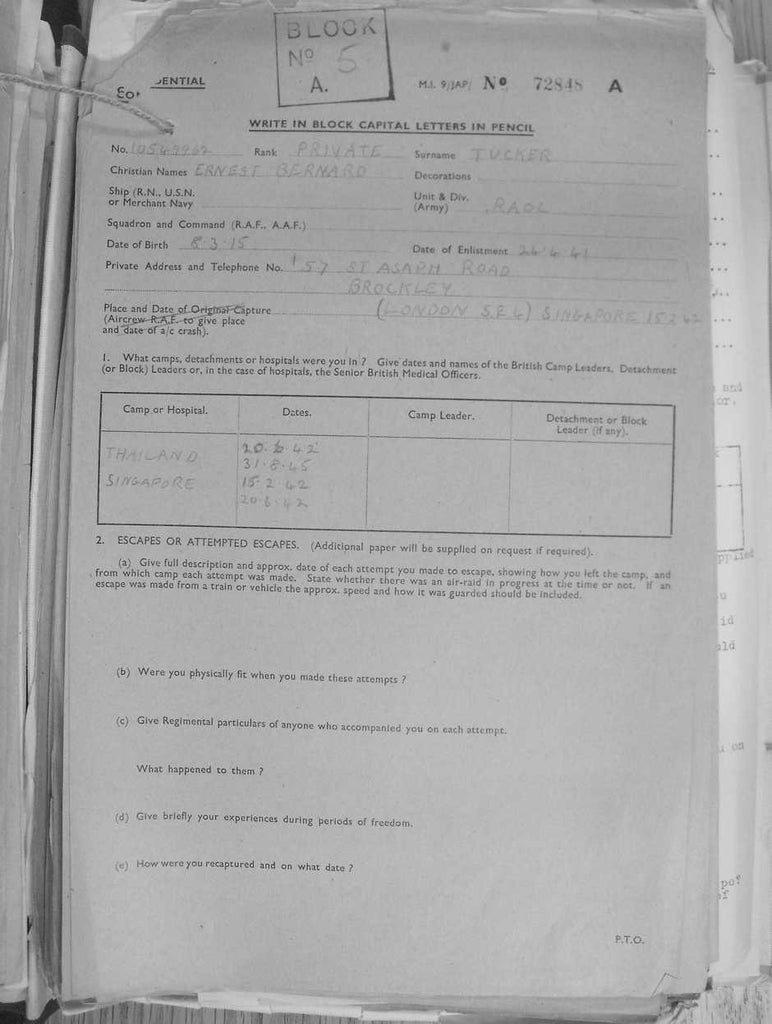 BLOCK
Nº 5
A.
ENTIAL
M.I. 9/JAP/ Nº 72848 A
WRITE IN BLOCK CAPITAL LETTERS IN PENCIL
No. 10549962 Rank PRIVATE Surname TUCKER
Christian Names ERNEST BERNARD Decorations
Ship (R.N., U.S.N. or Merchant Navy Unit & Div. (Army) RAOC
Squadron and Command (R.A.F., A.A.F.)
Date of Birth 8.3.15 Date of Enlistment 24.4.41
Private Address and Telephone No. 157 ST ASAPH ROAD
BROCKLEY
(LONDON S.E.4)
Place and Date of Original Capture SINGAPORE 15 2 42
(Aircrew R.A.F. to give place
and date of a/c crash).
1. What camps, detachments or hospitals were you in ? Give dates and names of the British Camp Leaders, Detachment
(or Block) Leaders or, in the case of hospitals, the Senior British Medical Officers.
Camp or Hospital. Dates. Camp Leader. Detachment or Block Leader (if any).
THAILAND 20.6.42
31.8.45
SINGAPORE 15.2.42
20.6.42
2. ESCAPES OR ATTEMPTED ESCAPES. (Additional paper will be supplied on request if required).
(a) Give full description and approx. date of each attempt you made to escape, showing how you left the camp, and
from which camp each attempt was made. State whether there was an air-raid in progress at the time or not. If an
escape was made from a train or vehicle the approx. speed and how it was guarded should be included.
(b) Were you physically fit when you made these attempts ?
(c) Give Regimental particulars of anyone who accompanied you on each attempt.
What happened to them ?
(d) Give briefly your experiences during periods of freedom.
(e) How were you recaptured and on what date ?
P.T.O.